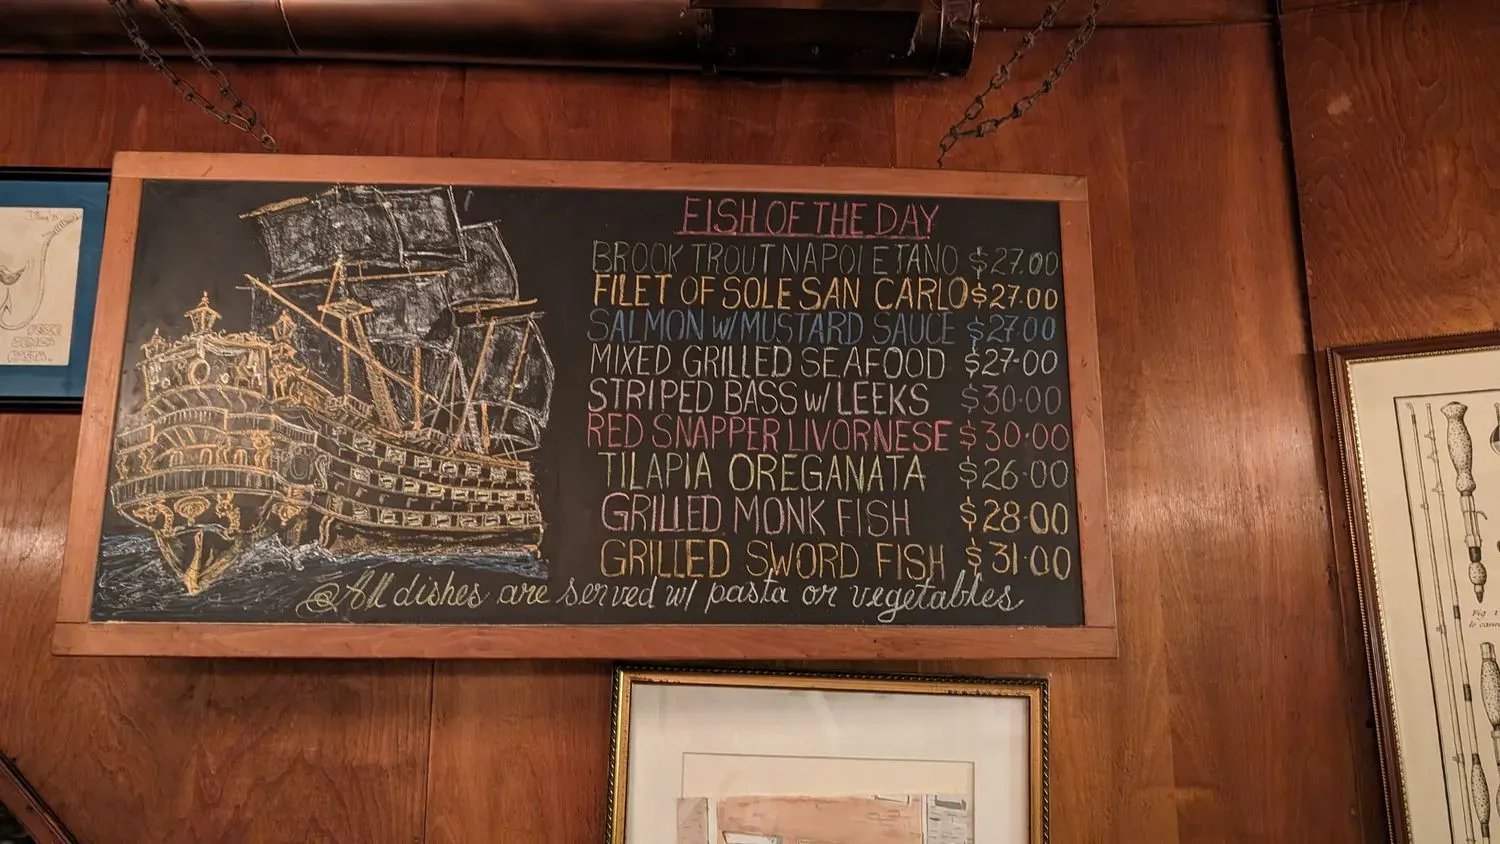 FISH OF THE DAY
BROOK TROUT NAPOLETANO $27.00
FILET OF SOLE SAN CARLO $27.00
SALMON W/MUSTARD SAUCE $27.00
MIXED GRILLED SEAFOOD $27.00
STRIPED BASS W/ LEEKS $30.00
RED SNAPPER LIVORNESE $30.00
TILAPIA OREGANATA $26.00
GRILLED MONK FISH $28.00
GRILLED SWORD FISH $31.00
All dishes are served w/ pasta or vegetables
Fig. 1